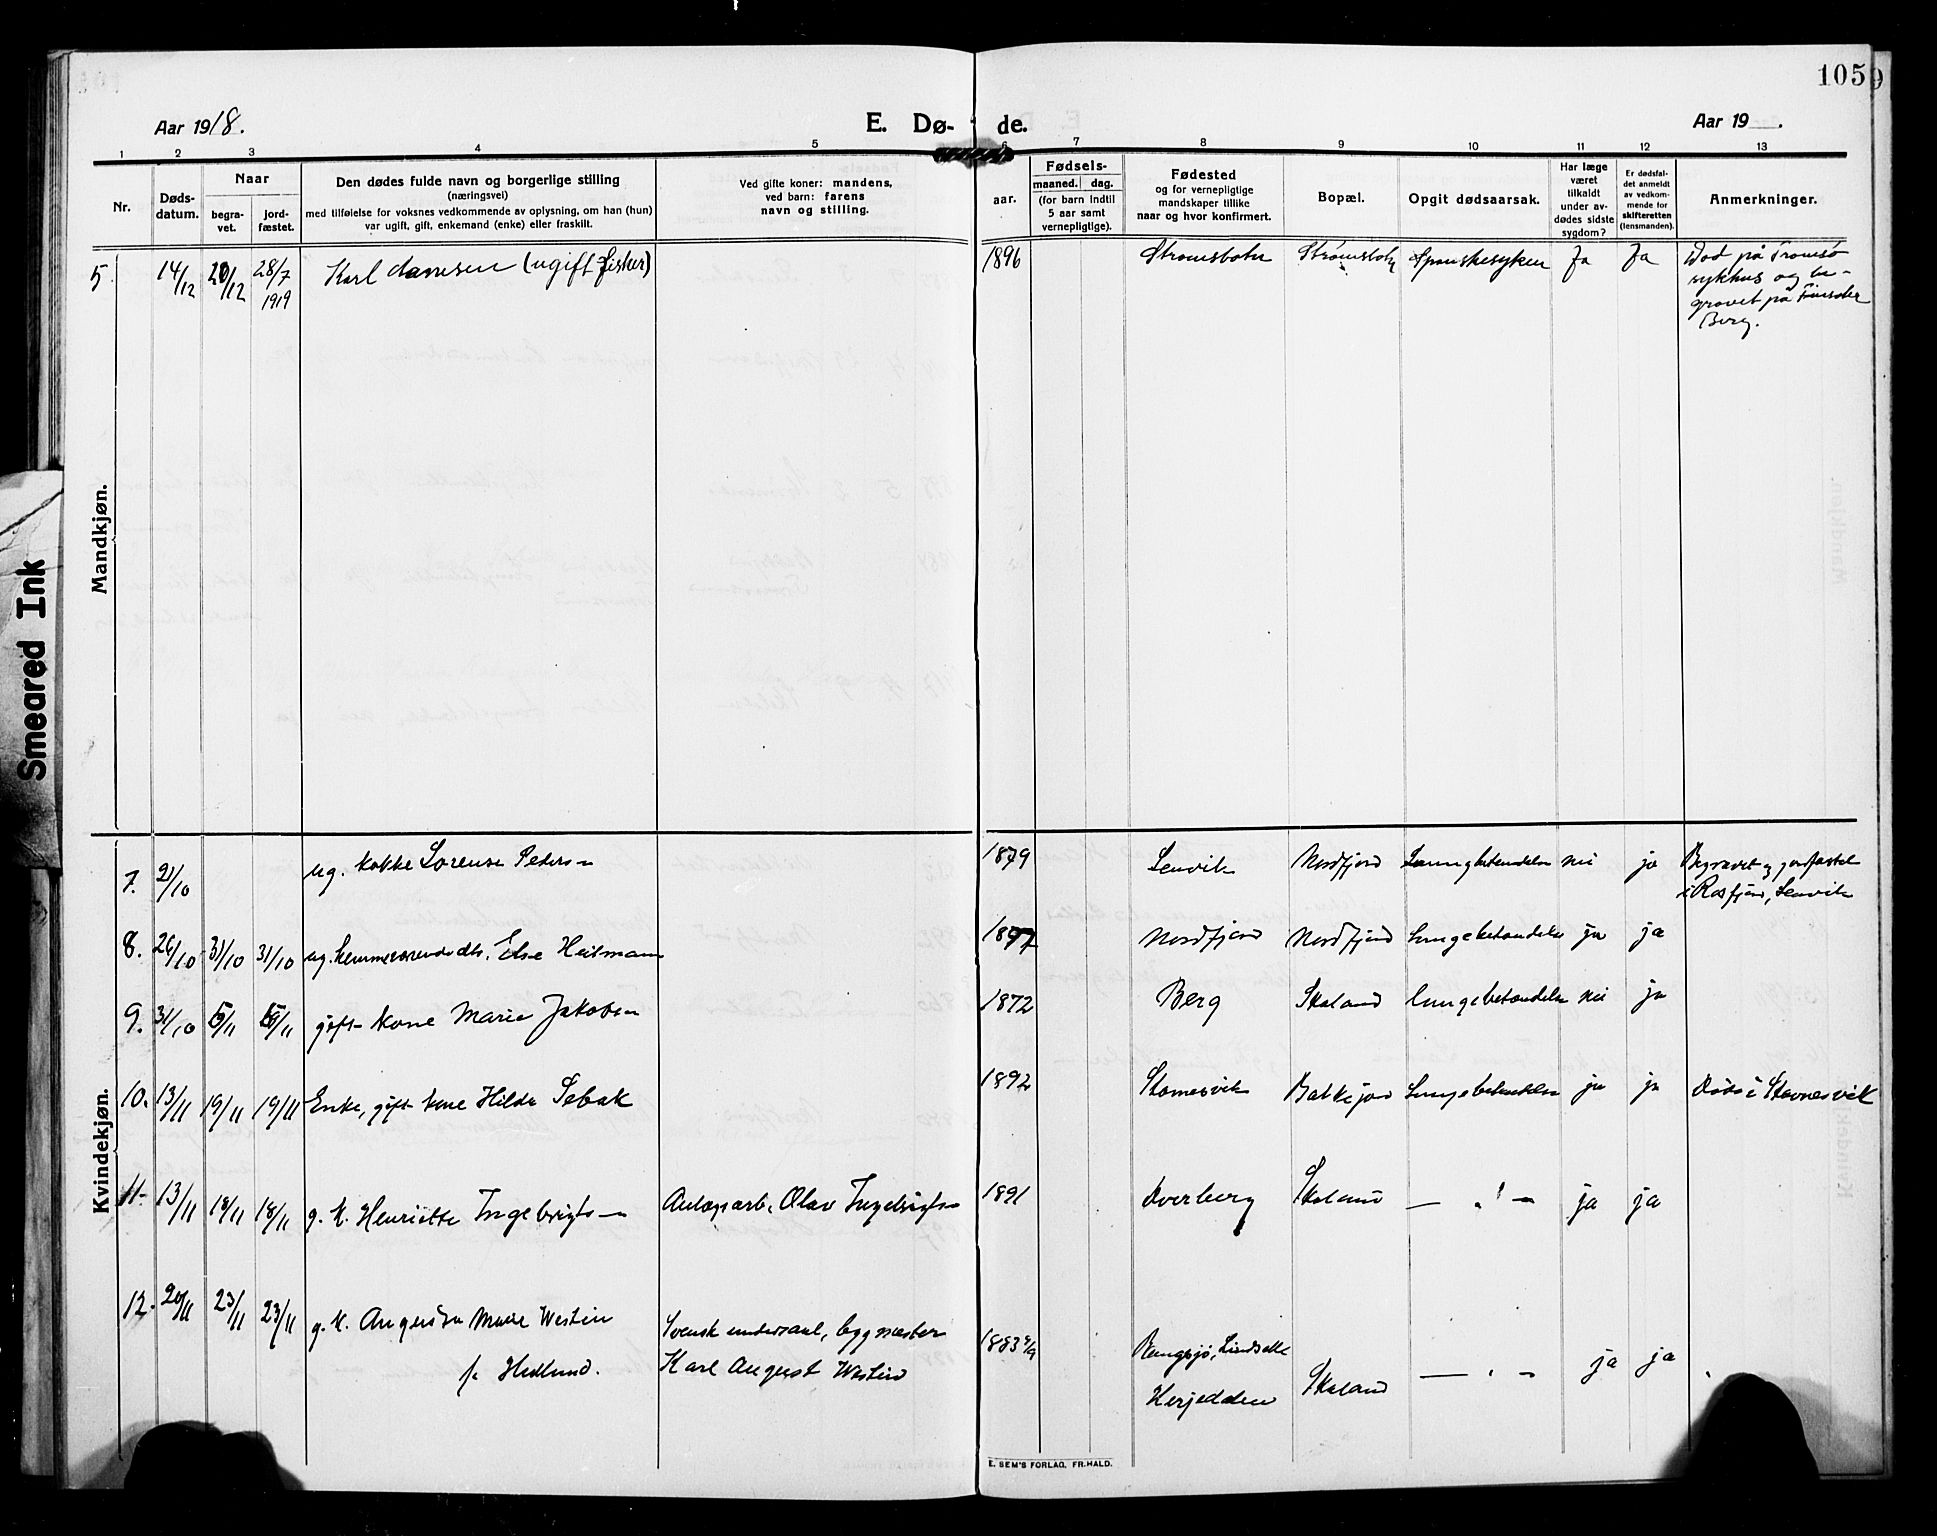 105
9
Aar 1918.
E. Dø-
de.
Aar 19 .
1 2 3 4 5 6 7 8 9 10 11 12 13
Nr.
Døds-
datum.
Naar
begra-
vet.
jord-
fæstet.
Den dødes fulde navn og borgerlige stilling
(næringsvei)
med tilføielse for voksnes vedkommende av oplysning, om han (hun)
var ugift, gift, enkemand (enke) eller fraskilt.
Ved gifte koner: mandens,
ved barn: farens
navn og stilling.
aar.
Fødsels-
maaned. dag.
(for barn indtil
5 aar samt
vernepligtige).
Fødested
og for vernepligtige
mandskaper tillike
naar og hvor konfirmert.
Bopæl.
Opgit dødsaarsak.
Har læge
været
tilkaldt
under av-
dødes sidste
sygdom?
Er dødsfal-
det anmeldt
av vedkom-
mende for
skifteretten
(lensmanden).
Anmerkninger.
Mandkjøn.
5. 14/12 20/12 28/7 1919 Karl (ugift fisker) 1896 Strømsbotn Strømsbotn Spanskesyken Ja Ja Død på Tromsø
sykhus og be-
gravet på
Berg.
Kvindekjøn.
7. 2/10 ug. kokke Lorense Peders- 1879 Lenvik Nordfjord Lungebetendelse nei ja Begravet og jordfæstet
i Rosfjord, Lenvik
8. 26/10 31/10 31/10 ug. Else Heitmann 1897 Nordfjord Nordfjord Lungebetændelse ja ja
9. 31/10 5/11 5/11 gift kone Marie Jakobsen 1872 Berg Skaland lungebetændelse nei ja
10. 13/11 19/11 19/11 Enke, gift kone Hilda Sebak 1892 Stønesvik Balkejord Lungebetændelse ja ja Døde i Stønnesvik
11. 13/11 18/11 18/11 g. k. Henriette Ingebrigts- Anlægsarb. Olav Ingebrigts- 1891 Dverberg Skaland — " — ja ja
12. 20/11 23/11 23/11 g. k. Marie Westin
f. Hedlund.
Svensk undersaat, bygmester
Karl August Westin
1883 Lindselle
Herjedalen
Skaland — " — ja ja
E. SEM'S FORLAG, FR.HALD.
Smeared Ink